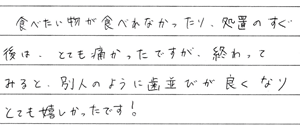 食べたい物が食べれなかったり、処置のすぐ
後は、とても痛かったですが、終わって
みると、別人のように歯並びが良くなり
とても嬉しかったです！